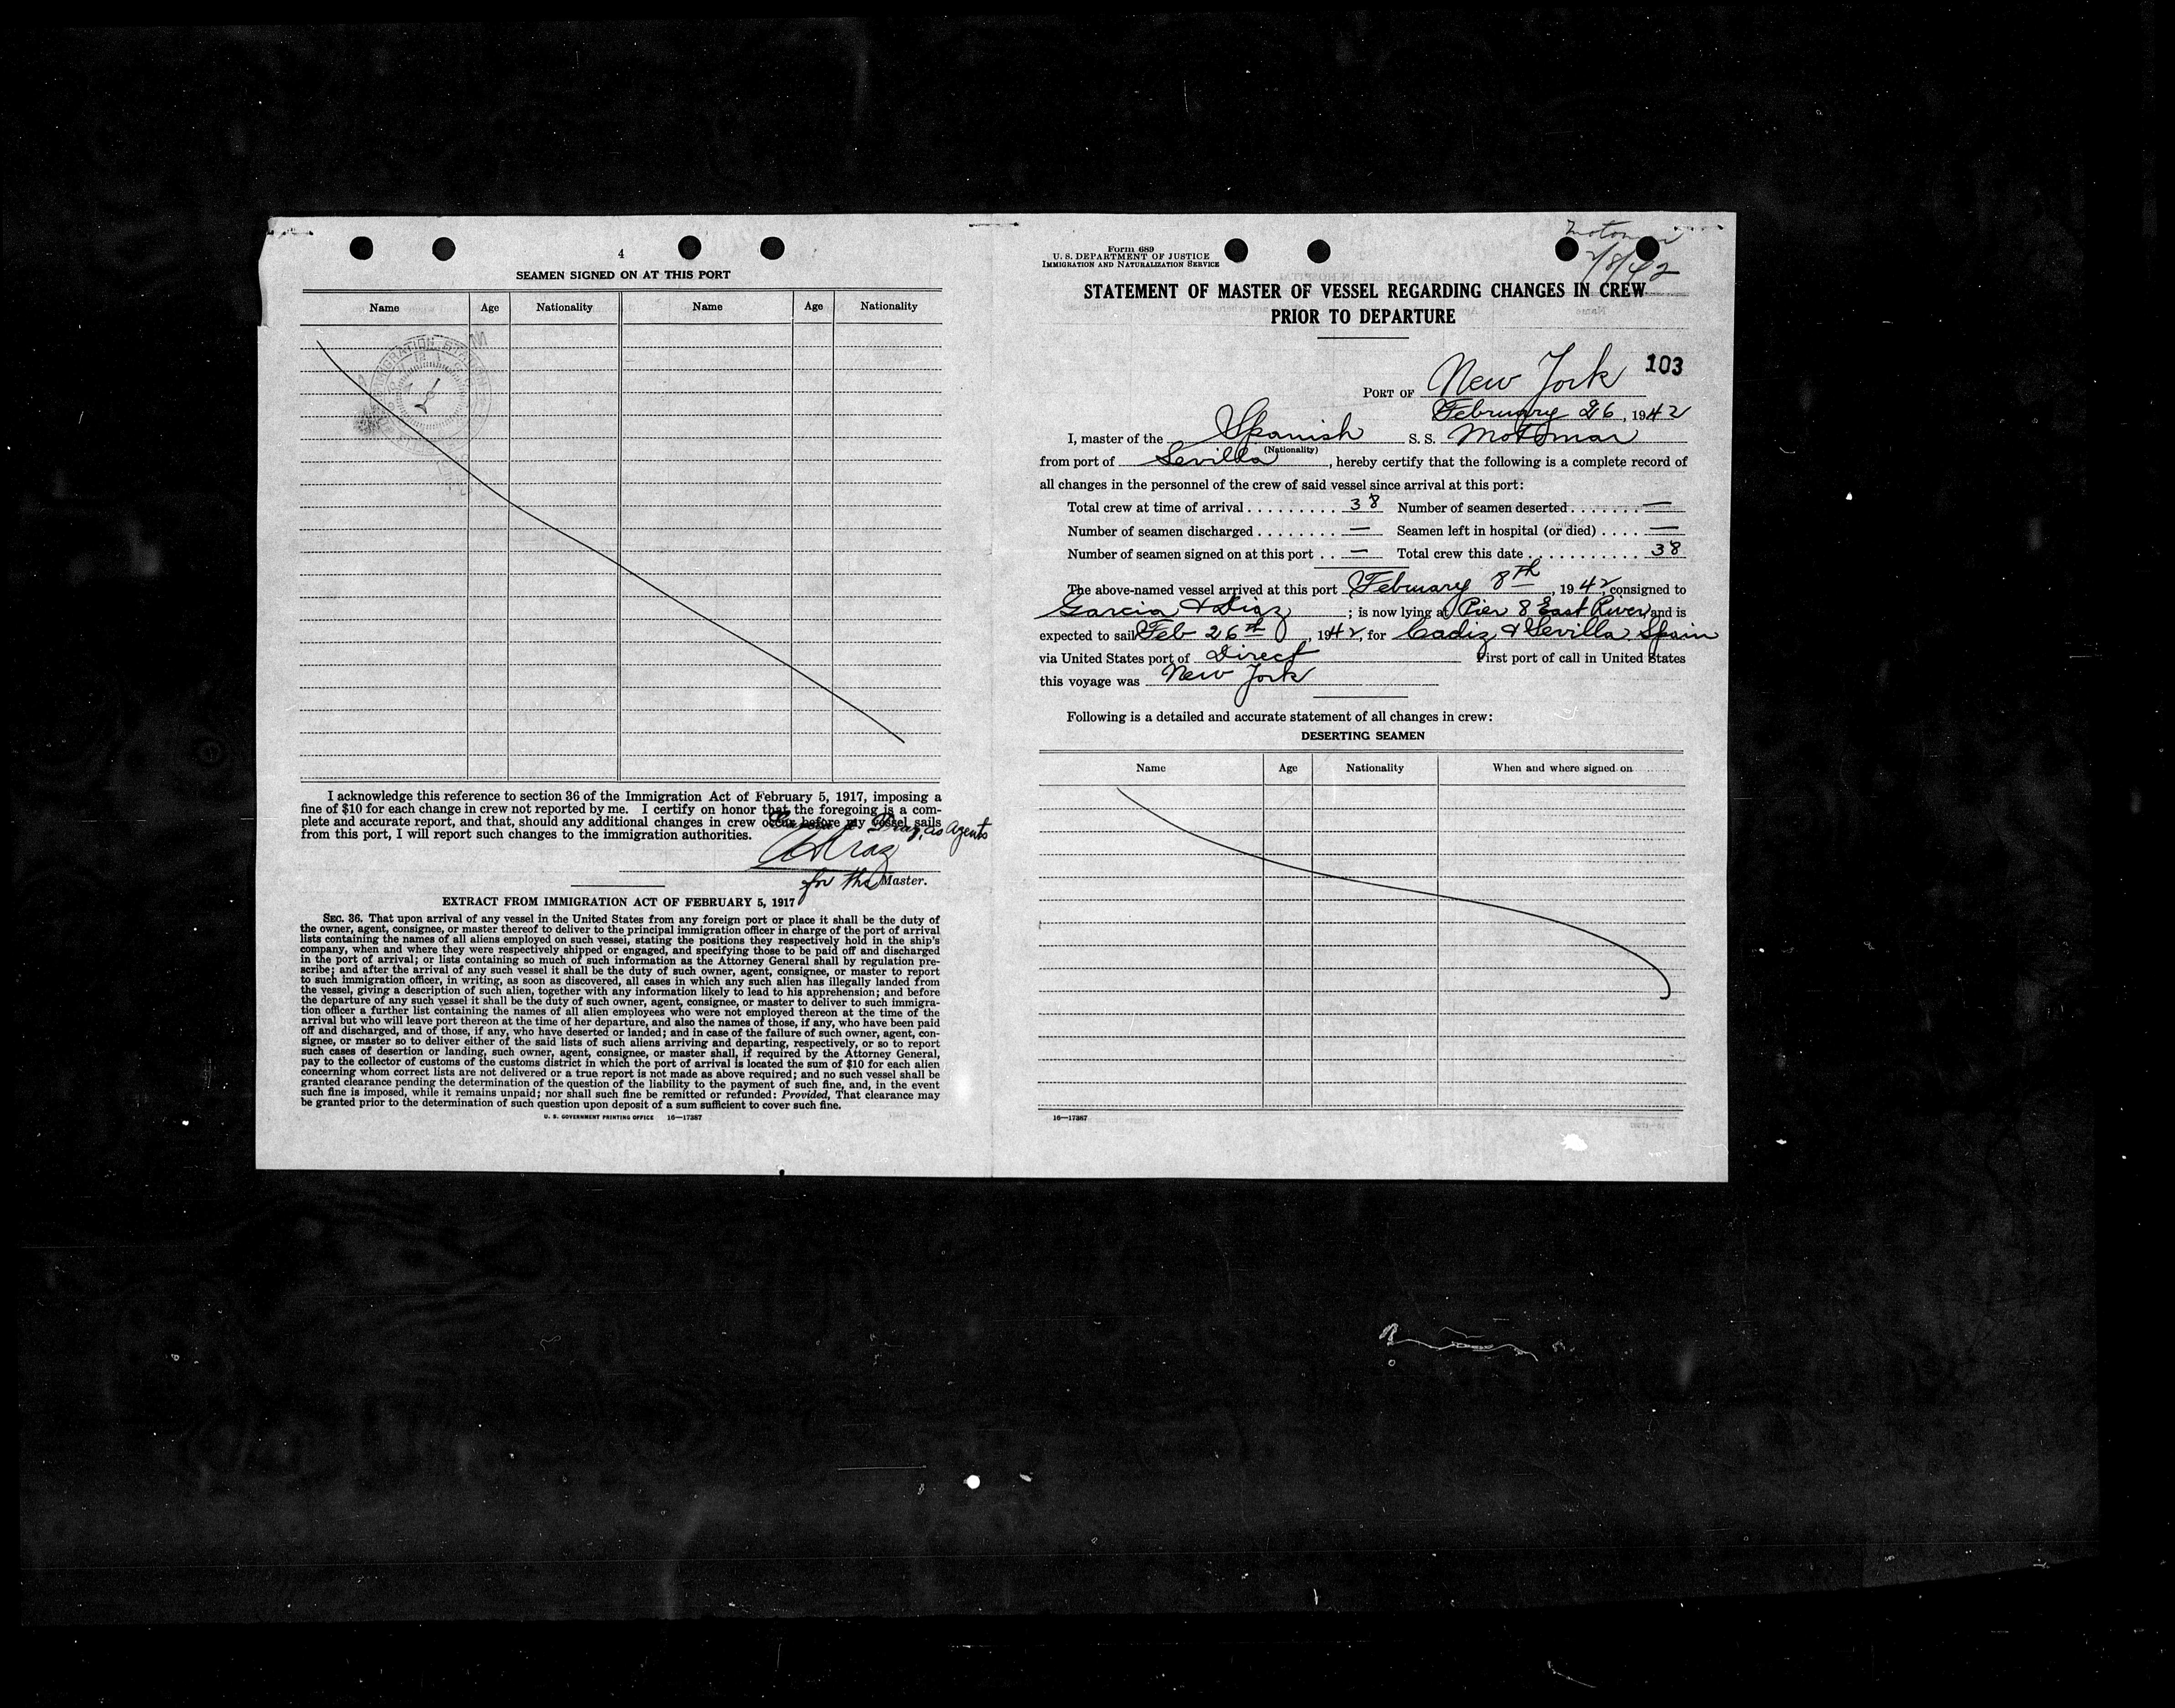 4
SEAMEN SIGNED ON AT THIS PORT
Name Age Nationality Name Age Nationality
I acknowledge this reference to section 36 of the Immigration Act of February 5, 1917, imposing a
fine of $10 for each change in crew not reported by me. I certify on honor that the foregoing is a com-
plete and accurate report, and that, should any additional changes in crew occur before my vessel sails
from this port, I will report such changes to the immigration authorities.
Diaz, as Agents
for the Master.
EXTRACT FROM IMMIGRATION ACT OF FEBRUARY 5, 1917
SEC. 36. That upon arrival of any vessel in the United States from any foreign port or place it shall be the duty of
the owner, agent, consignee, or master thereof to deliver to the principal immigration officer in charge of the port of arrival
lists containing the names of all aliens employed on such vessel, stating the positions they respectively hold in the ship's
company, when and where they were respectively shipped or engaged, and specifying those to be paid off and discharged
in the port of arrival; or lists containing so much of such information as the Attorney General shall by regulation pre-
scribe; and after the arrival of any such vessel it shall be the duty of such owner, agent, consignee, or master to report
to such immigration officer, in writing, as soon as discovered, all cases in which any such alien has illegally landed from
the vessel, giving a description of such alien, together with any information likely to lead to his apprehension; and before
the departure of any such vessel it shall be the duty of such owner, agent, consignee, or master to deliver to such immigra-
tion officer a further list containing the names of all alien employees who were not employed thereon at the time of the
arrival but who will leave port thereon at the time of her departure, and also the names of those, if any, who have been paid
off and discharged, and of those, if any, who have deserted or landed; and in case of the failure of such owner, agent, con-
signee, or master so to deliver either of the said lists of such aliens arriving and departing, respectively, or so to report
such cases of desertion or landing, such owner, agent, consignee, or master shall, if required by the Attorney General,
pay to the collector of customs of the customs district in which the port of arrival is located the sum of $10 for each alien
concerning whom correct lists are not delivered or a true report is not made as above required; and no such vessel shall be
granted clearance pending the determination of the question of the liability to the payment of such fine, and, in the event
such fine is imposed, while it remains unpaid; nor shall such fine be remitted or refunded: Provided, That clearance may
be granted prior to the determination of such question upon deposit of a sum sufficient to cover such fine.
U. S. GOVERNMENT PRINTING OFFICE 16—17387
Motomar
2/8/42
Form 689
U. S. DEPARTMENT OF JUSTICE
IMMIGRATION AND NATURALIZATION SERVICE
STATEMENT OF MASTER OF VESSEL REGARDING CHANGES IN CREW
PRIOR TO DEPARTURE
PORT OF New York 103
February 26, 1942
I, master of the Spanish S. S. Motomar
(Nationality)
from port of Sevilla, hereby certify that the following is a complete record of
all changes in the personnel of the crew of said vessel since arrival at this port:
Total crew at time of arrival 38 Number of seamen deserted —
Number of seamen discharged — Seamen left in hospital (or died) —
Number of seamen signed on at this port — Total crew this date 38
The above-named vessel arrived at this port February 8th, 1942, consigned to
Garcia & Diaz; is now lying at Pier 8 East River and is
expected to sail Feb 26th, 1942, for Cadiz & Sevilla Spain
via United States port of Direct First port of call in United States
this voyage was New York
Following is a detailed and accurate statement of all changes in crew:
DESERTING SEAMEN
Name Age Nationality When and where signed on
16—17387